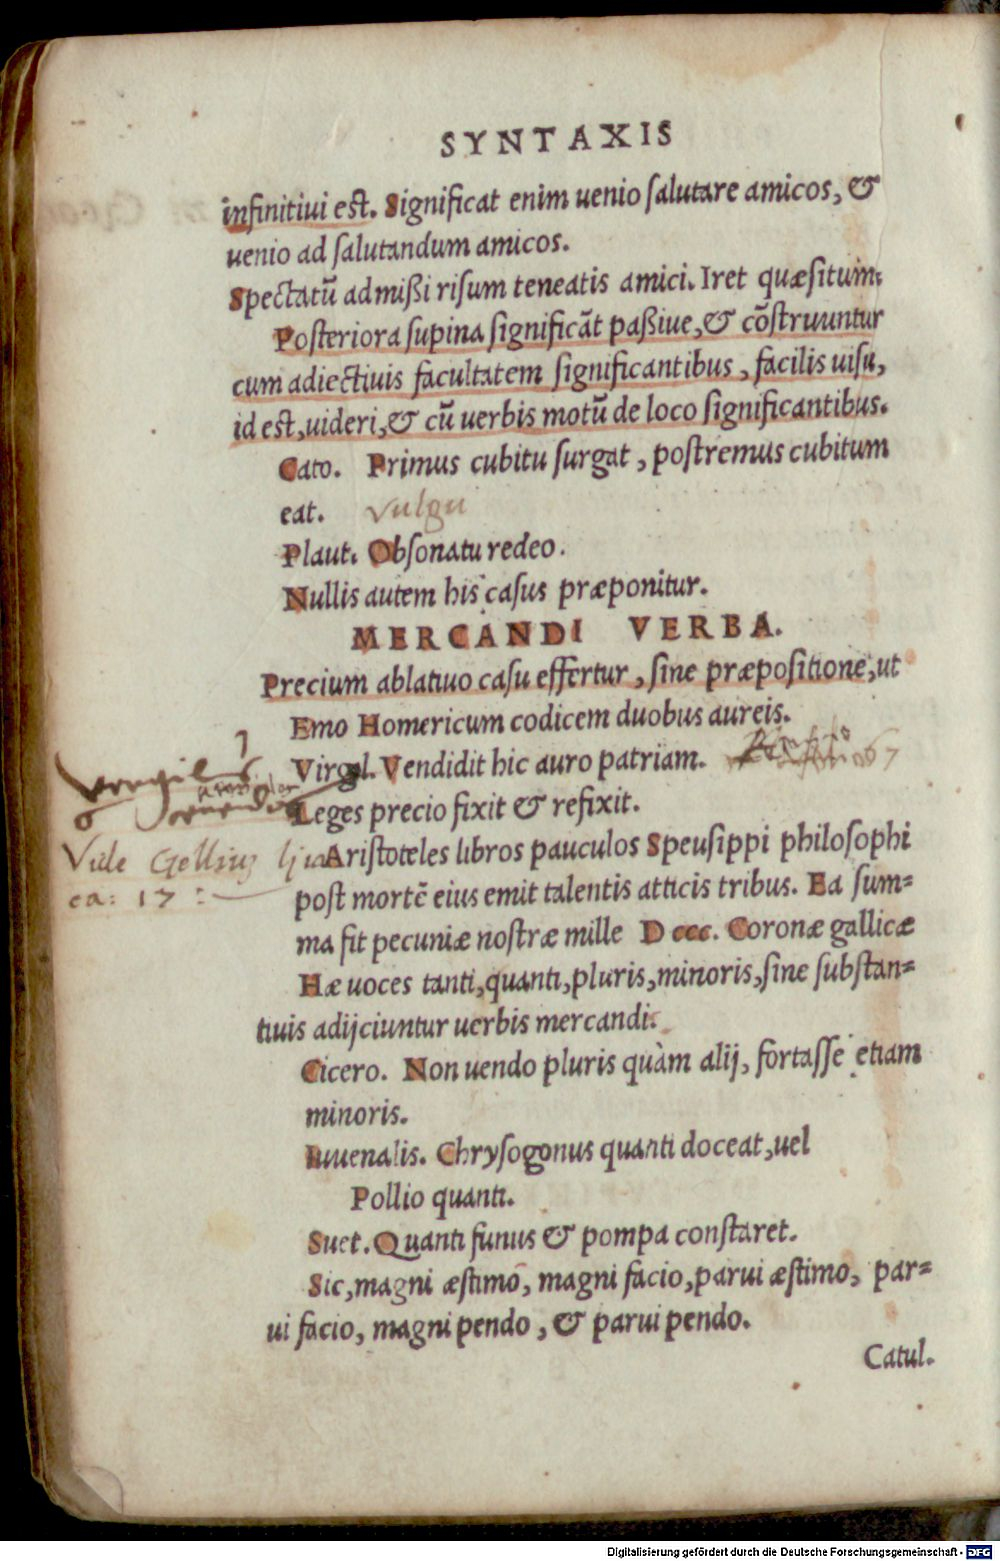 SYNTAXIS
infinitiui est. Significat enim uenio ſalutare amicos, &
uenio ad ſalutandum amicos.
Spectatũ admißi riſum teneatis amici. Iret quæſitum:
Poſteriora ſupina ſignificãt paßiue, & cõſtruuntur
cum adiectiuis facultatem ſignificantibus, facilis uiſu,
id est, uideri, & cũ uerbis motũ de loco ſignificantibus.
Cato. Primus cubitu ſurgat, poſtremus cubitum
eat. Vulgu
Plaut. Obſonatu redeo.
Nullis autem his caſus præponitur.
MERCANDI VERBA.
Precium ablatiuo caſu effertur, ſine præpoſitione, ut
Emo Homericum codicem duobus aureis.
Virgil. Vendidit hic auro patriam.
Leges precio fixit & refixit.
Vide Gellium
ca: 17 :
Ariſtoteles libros pauculos Speuſippi philoſophi
poſt mortẽ eius emit talentis atticis tribus. Ea ſum=
ma fit pecuniæ noſtræ mille D ccc. Coronæ gallicæ
Hæ uoces tanti, quanti, pluris, minoris, ſine ſubſtan=
tiuis adijciuntur uerbis mercandi.
Cicero. Non uendo pluris quàm alij, fortaſſe etiam
minoris.
Iuuenalis. Chryſogonus quanti doceat, uel
Pollio quanti.
Suet. Quanti funus & pompa conſtaret.
Sic, magni æſtimo, magni facio, parui æſtimo, par=
ui facio, magni pendo, & parui pendo.
Catul.
Digitalisierung gefördert durch die Deutsche Forschungsgemeinschaft - DFG